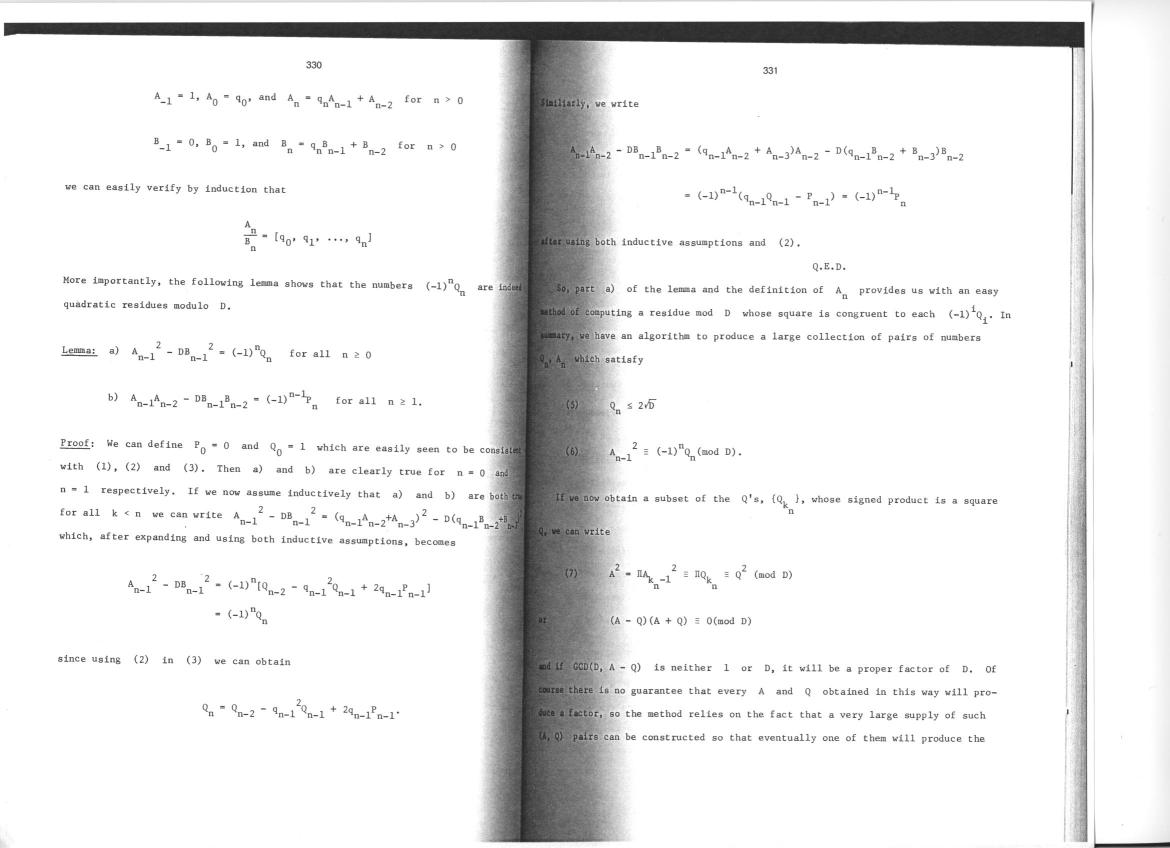 330
A_{-1} = 1, A_0 = q_0, and A_n = q_n A_{n-1} + A_{n-2} for n > 0
B_{-1} = 0, B_0 = 1, and B_n = q_n B_{n-1} + B_{n-2} for n > 0
we can easily verify by induction that
A_n / B_n = [q_0, q_1, ..., q_n]
More importantly, the following lemma shows that the numbers (-1)^n Q_n are indeed
quadratic residues modulo D.
Lemma: a) A_{n-1}^2 - DB_{n-1}^2 = (-1)^n Q_n for all n ≥ 0
b) A_{n-1}A_{n-2} - DB_{n-1}B_{n-2} = (-1)^{n-1}P_n for all n ≥ 1.
Proof: We can define P_0 = 0 and Q_0 = 1 which are easily seen to be consistent
with (1), (2) and (3). Then a) and b) are clearly true for n = 0 and
n = 1 respectively. If we now assume inductively that a) and b) are both true
for all k < n we can write A_{n-1}^2 - DB_{n-1}^2 = (q_{n-1}A_{n-2}+A_{n-3})^2 - D(q_{n-1}B_{n-2}+B_{n-3})^2
which, after expanding and using both inductive assumptions, becomes
A_{n-1}^2 - DB_{n-1}^2 = (-1)^n [Q_{n-2} - q_{n-1}^2 Q_{n-1} + 2q_{n-1}P_{n-1}]
= (-1)^n Q_n
since using (2) in (3) we can obtain
Q_n = Q_{n-2} - q_{n-1}^2 Q_{n-1} + 2q_{n-1}P_{n-1}.
331
Similiarly, we write
A_{n-1}A_{n-2} - DB_{n-1}B_{n-2} = (q_{n-1}A_{n-2} + A_{n-3})A_{n-2} - D(q_{n-1}B_{n-2} + B_{n-3})B_{n-2}
= (-1)^{n-1}(q_{n-1}Q_{n-1} - P_{n-1}) = (-1)^{n-1}P_n
after using both inductive assumptions and (2).
Q.E.D.
So, part a) of the lemma and the definition of A_n provides us with an easy
method of computing a residue mod D whose square is congruent to each (-1)^i Q_i. In
summary, we have an algorithm to produce a large collection of pairs of numbers
Q_n, A_n which satisfy
(5) Q_n ≤ 2√D
(6) A_{n-1}^2 ≡ (-1)^n Q_n (mod D).
If we now obtain a subset of the Q's, {Q_{k_n}}, whose signed product is a square
Q, we can write
(7) A^2 = ΠA_{k_n-1}^2 ≡ ΠQ_{k_n} ≡ Q^2 (mod D)
or (A - Q)(A + Q) ≡ 0(mod D)
and if GCD(D, A - Q) is neither 1 or D, it will be a proper factor of D. Of
course there is no guarantee that every A and Q obtained in this way will pro-
duce a factor, so the method relies on the fact that a very large supply of such
(A, Q) pairs can be constructed so that eventually one of them will produce the